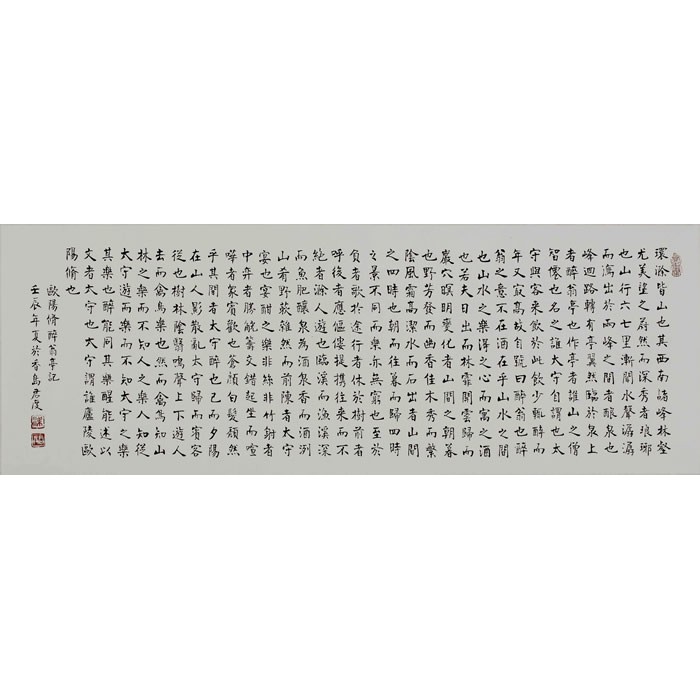 環滁皆山也其西南諸峰林壑
尤美望之蔚然而深秀者琅琊
也山行六七里漸聞水聲潺潺
而瀉出於兩峰之間者釀泉也
峰迴路轉有亭翼然臨於泉上
者醉翁亭也作亭者誰山之僧
智僊也名之誰太守自謂也太
守與客來飲於此飲少輒醉而
年又最高故自號曰醉翁也醉
翁之意不在酒在乎山水之間
也山水之樂得之心而寓之酒
也若夫日出而林霏開雲歸而
巖穴暝明變化者山間之朝暮
也野芳發而幽香佳木秀而繁
陰風霜高潔水而石出者山間
之四時也朝而往暮而歸四時
之景不同而樂亦無窮也至於
負者歌於途行者休於樹前者
呼後者應傴僂提攜往來而不
絕者滁人遊也臨溪而漁溪深
而魚肥釀泉為酒泉香而酒洌
山肴野蔌雜然而前陳者太守
宴也宴酣之樂非絲非竹射者
中弈者勝觥籌交錯起坐而喧
嘩者眾賓歡也蒼顏白髮頹然
乎其間者太守醉也已而夕陽
在山人影散亂太守歸而賓客
從也樹林陰翳鳴聲上下遊人
去而禽鳥樂也然而禽鳥知山
林之樂而不知人之樂人知從
太守遊而樂而不知太守之樂
其樂也醉能同其樂醒能述以
文者太守也太守謂誰廬陵歐
陽脩也
歐陽脩醉翁亭記
壬辰年夏於香島君度